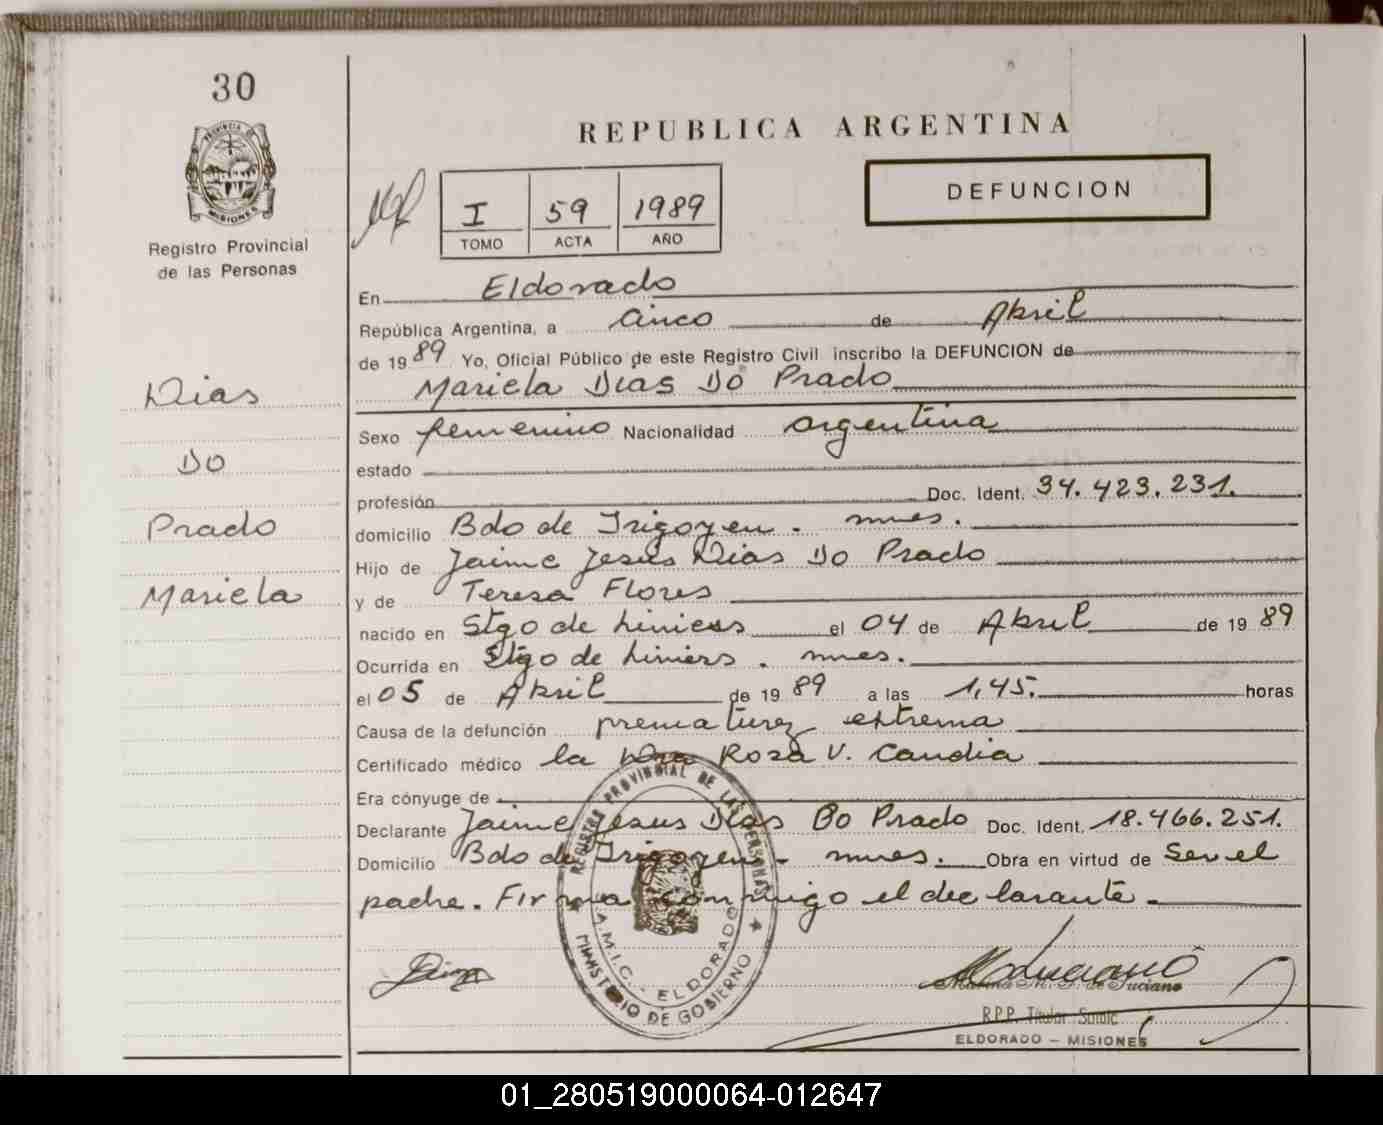 30
PROVINCIA DE
MISIONES
Registro Provincial
de las Personas
REPUBLICA ARGENTINA
DEFUNCION
I 59 1989
TOMO ACTA AÑO
En Eldorado
República Argentina, a cinco de Abril
de 1989 Yo, Oficial Público de este Registro Civil inscribo la DEFUNCION de
Mariela Dias Do Prado
Dias
Do
Prado
Mariela
Sexo femenino Nacionalidad argentina
estado
profesión Doc. Ident. 34.423.231.
domicilio Bdo de Irigoyen. mnes.
Hijo de Jaime Jesus Dias Do Prado
y de Teresa Flores
nacido en Stgo de Liniers el 04 de Abril de 1989
Ocurrida en Stgo de Liniers. mnes.
el 05 de Abril de 1989 a las 1,45. horas
Causa de la defunción prematurez extrema
Certificado médico la Dra Rosa V. Candia
Era cónyuge de
Declarante Jaime Jesus Dias Do Prado Doc. Ident. 18.466.251.
Domicilio Bdo de Irigoyen - mnes. Obra en virtud de Ser el
padre. Firma conmigo el declarante.
REGISTRO PROVINCIAL DE LAS PERSONAS
A.M.I.C. - ELDORADO
MINISTERIO DE GOBIERNO
R.P.P. Titular
ELDORADO - MISIONES
01_280519000064-012647